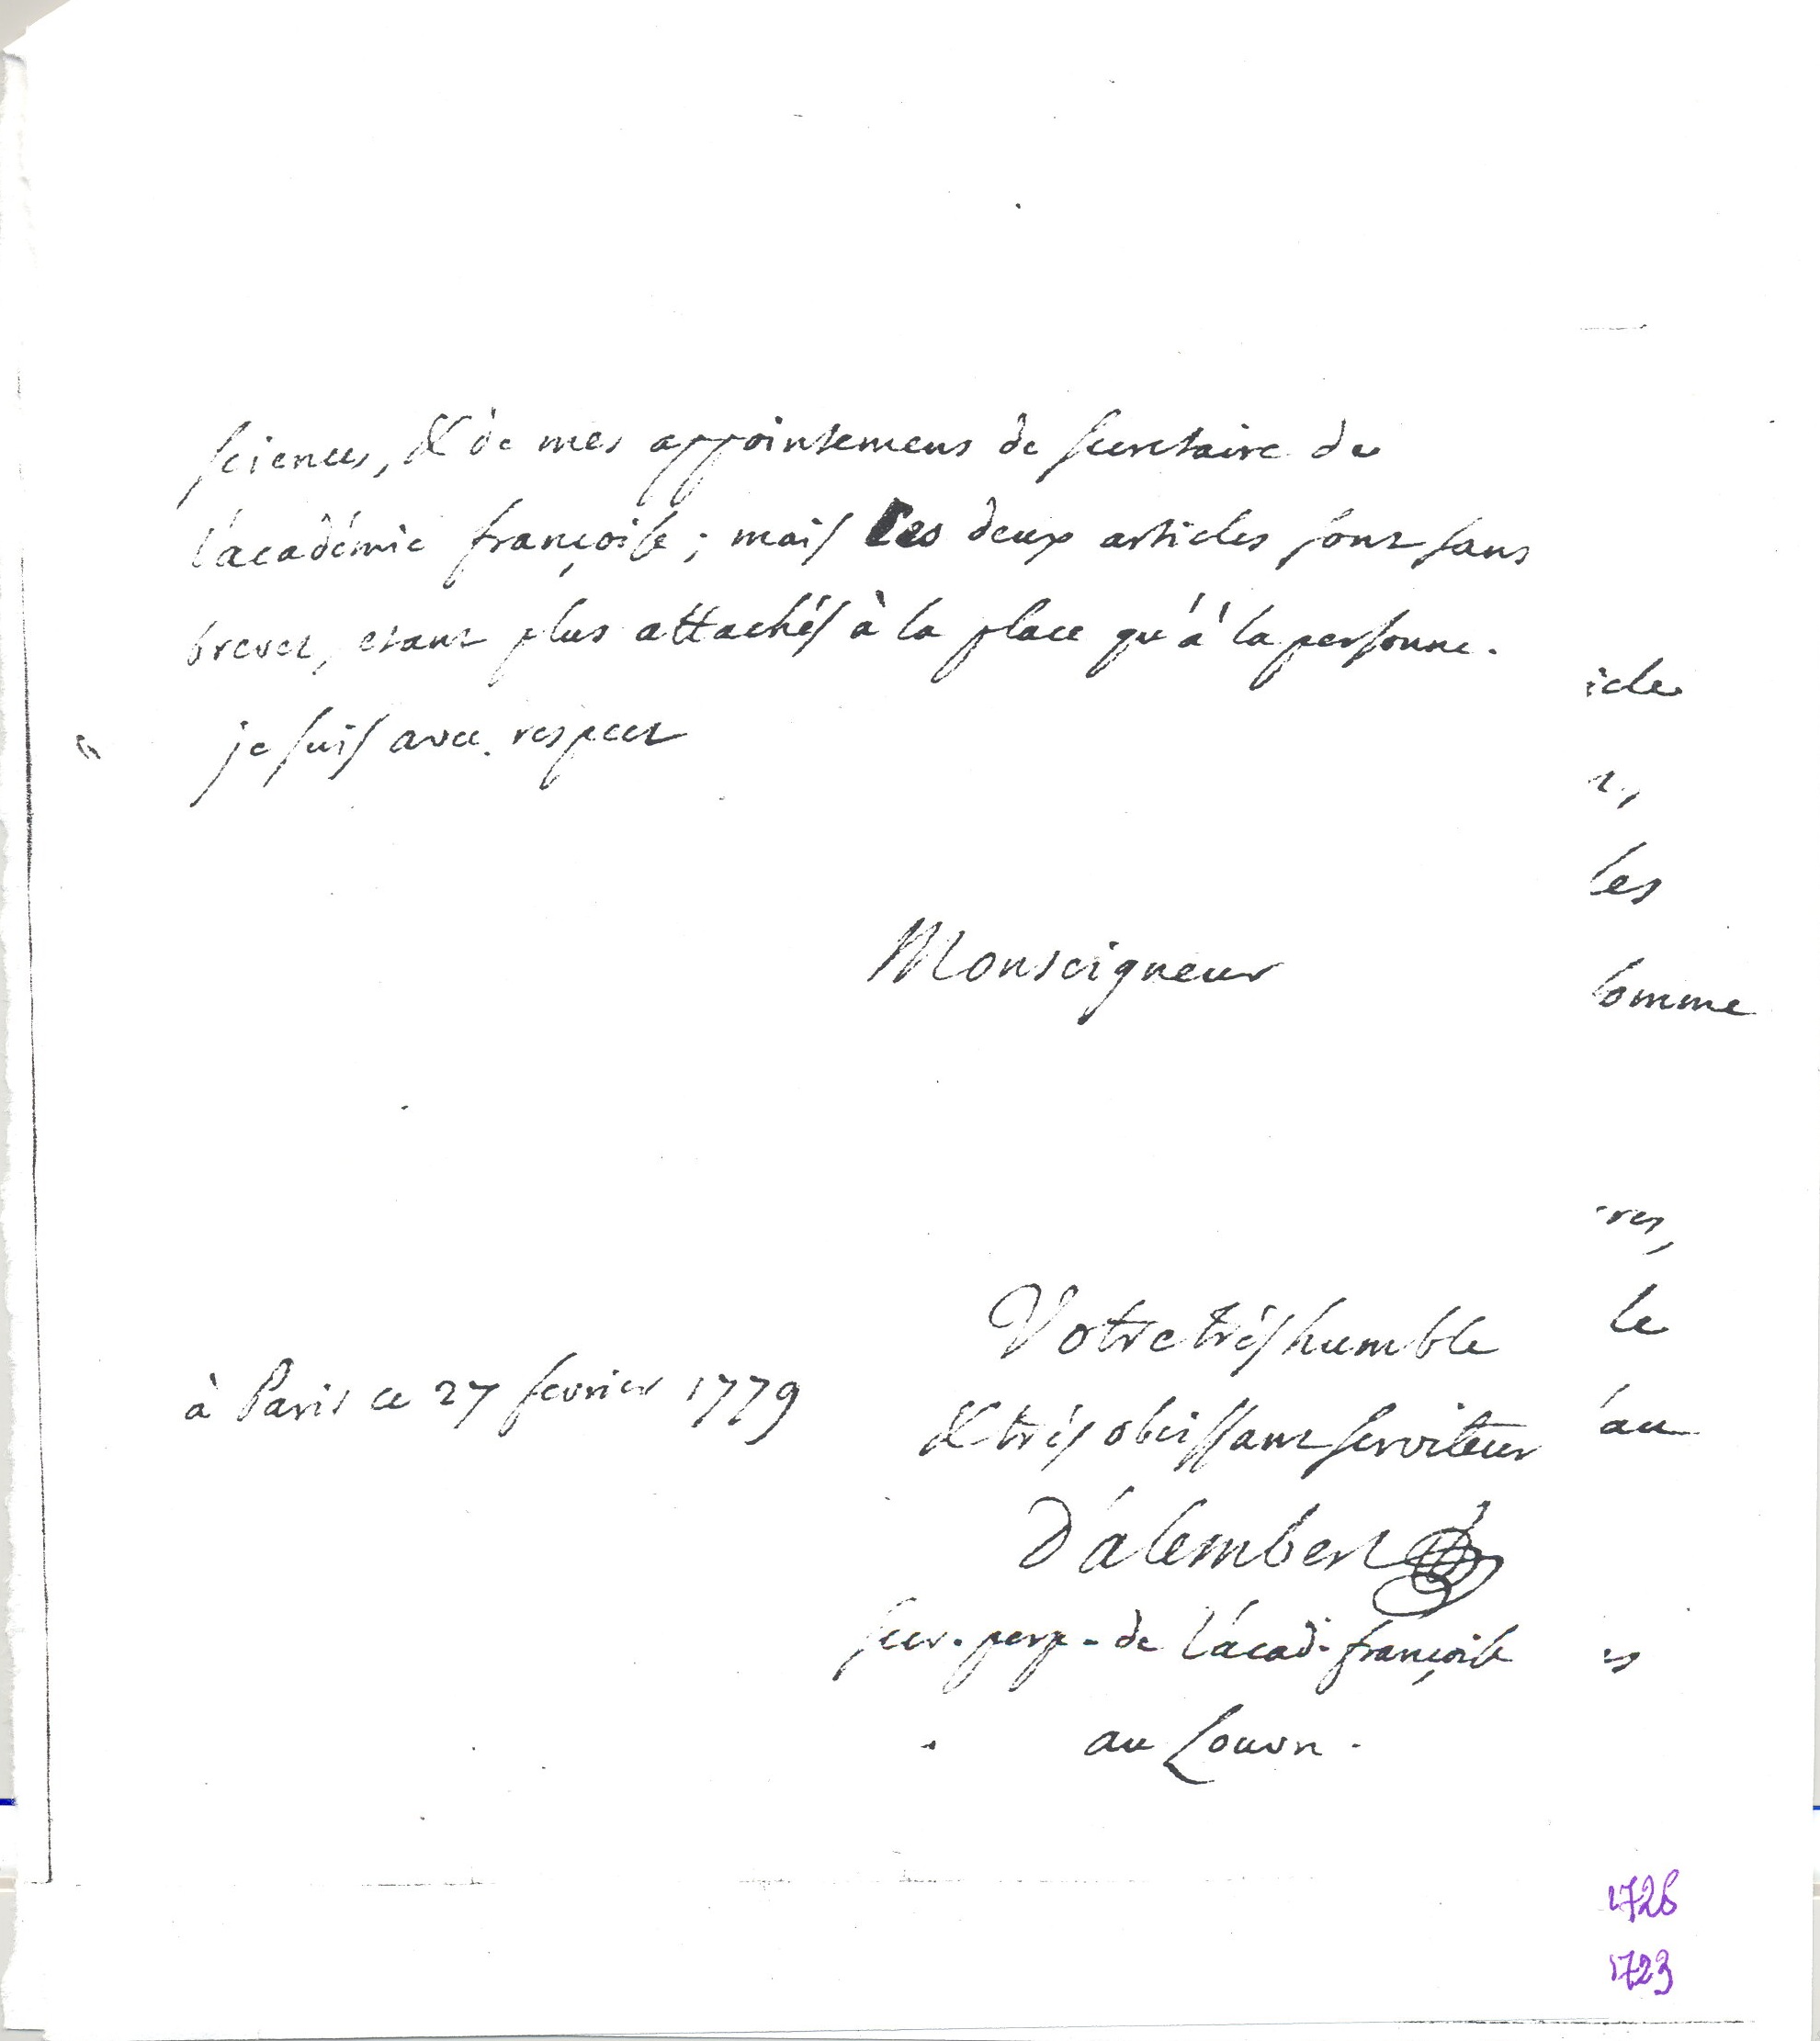 sciences, & de mes appointemens de secretaire de
l'académie françoise; mais ces deux articles sont sans
brevet, etant plus attachés à la place qu'à la personne.
je suis avec respect
icle
t,
les
Monseigneur
somme
res,
Votre très humble
le
à Paris ce 27 fevrier 1779
& très obeissant serviteur
au
D'alembert
secr. perp. de l'acad. françoise
es
au Louvre.
1726
1723